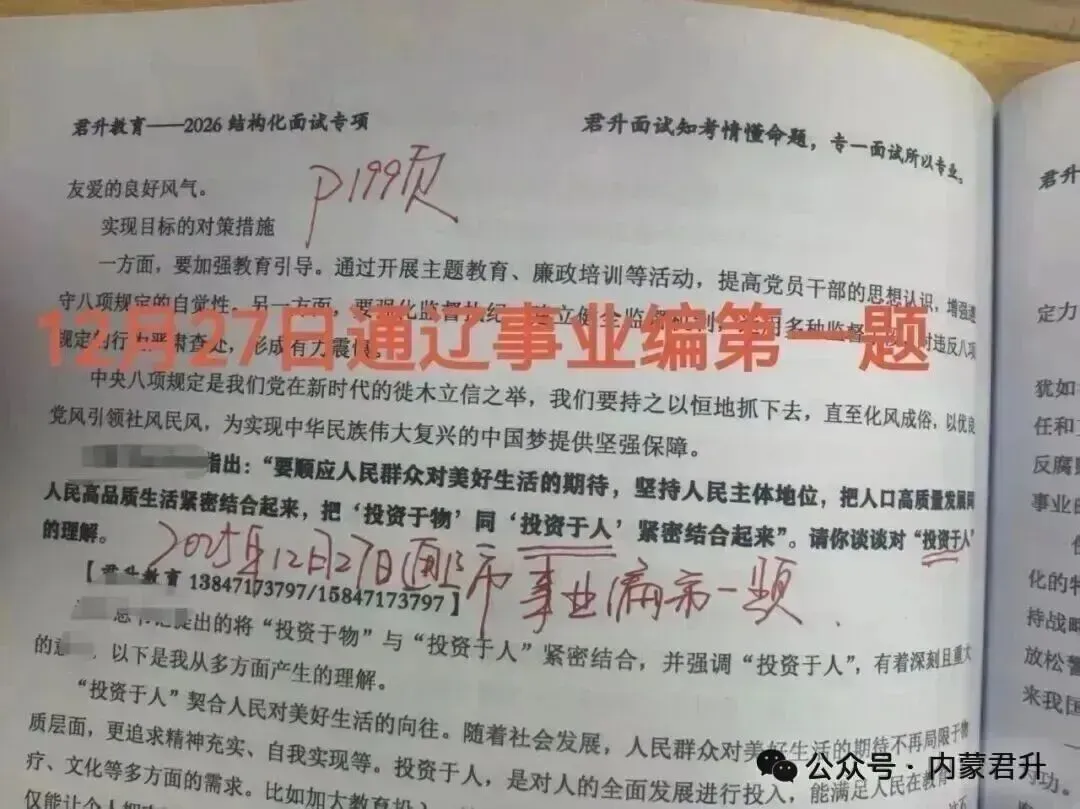 君升教育——2026 结构化面试专项
君升面试知考情懂命题，专一面试所以专业。
P199页
友爱的良好风气。
实现目标的对策措施
一方面，要加强教育引导。通过开展主题教育、廉政培训等活动，提高党员干部的思想认识，增强遵
守八项规定的自觉性。另一方面，要强化监督执纪。
12月27日通辽事业编第一题
中央八项规定是我们党在新时代的徙木立信之举，我们要持之以恒地抓下去，直至化风成俗，以优良
党风引领社风民风，为实现中华民族伟大复兴的中国梦提供坚强保障。
指出：“要顺应人民群众对美好生活的期待，坚持人民主体地位，把人口高质量发展同
人民高品质生活紧密结合起来，把‘投资于物’同‘投资于人’紧密结合起来”。请你谈谈对“投资于人”
的理解。
2025年12月27日通辽市事业编第一题
【君升教育 13847173797/15847173797】
提出的将“投资于物”与“投资于人”紧密结合，并强调“投资于人”，有着深刻且重大
的意 。以下是我从多方面产生的理解。
“投资于人”契合人民对美好生活的向往。随着社会发展，人民群众对美好生活的期待不再局限于物
质层面，更追求精神充实、自我实现等。投资于人，是对人的全面发展进行投入，能满足人民在教育
疗、文化等多方面的需求。比如加大教育投入
仅能让个人
君升
定力
犹如
任和
反腐
事业的
化的特
持战略
放松警
来我国
功。
公众号·内蒙君升